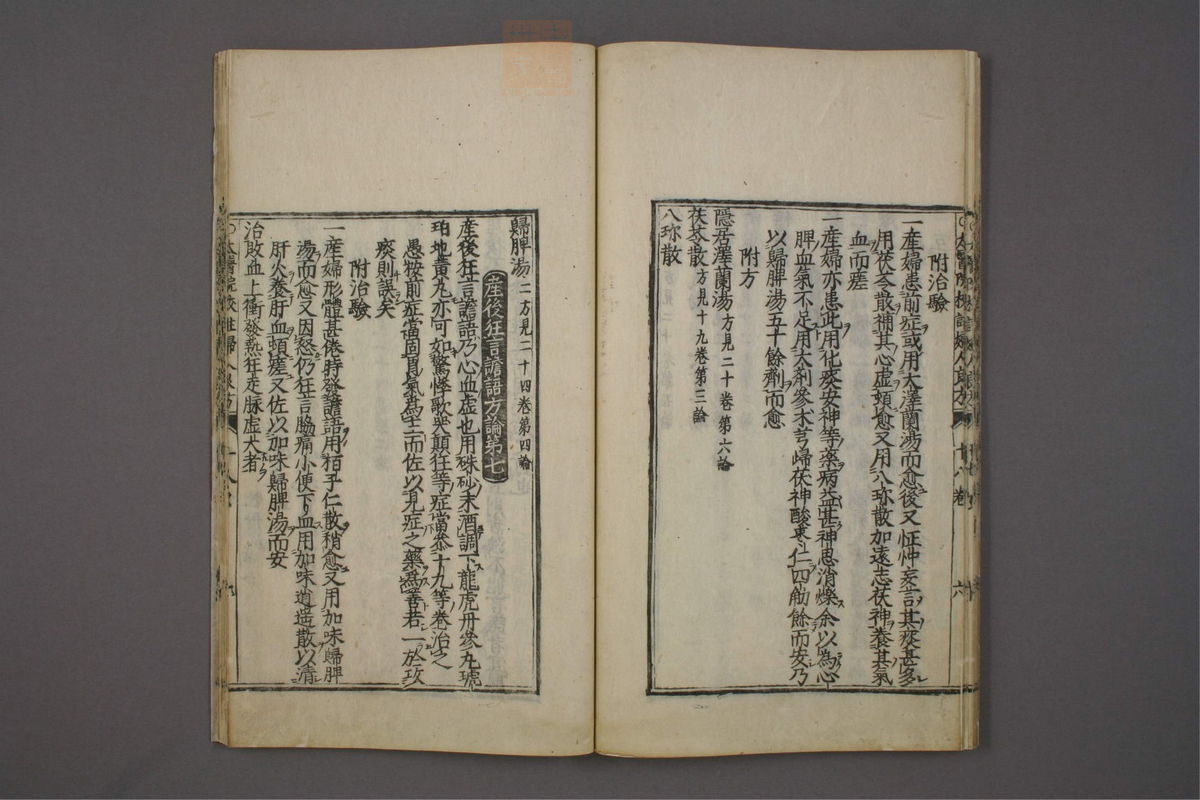 附治驗
一産婦患前症或用大澤蘭湯而愈後又怔忡妄言其痰甚多
用茯苓散補其心虛頓愈又用八珎散加遠志茯神養其氣
血而瘥
一産婦亦患此用化痰安神等藥病益甚神思消爍余以為心
脾血氣不足用大剤參朮芎歸茯神酸棗仁四觔餘而安乃
以歸脾湯五十餘劑而愈
附方
隱居澤蘭湯方見二十卷第六論
茯苓散方見十九卷第三論
八珎散
歸脾湯二方見二十四卷第四論
産後狂言譫語方論第七
産後狂言譫語乃心血虚也用硃砂末酒調下龍虎丹參丸琥
珀地黄丸亦可如驚悸歌哭顛狂等症當叅十九等卷治之
愚按前症當固胃氣為主而佐以見症之藥為善若一於攻
痰則誤矣
附治驗
一産婦形體甚倦時發譫語用栢子仁散稍愈又用加味歸脾
湯而愈又因怒仍狂言脇痛小便下血用加味逍遥散以清
肝火養肝血頓瘥又佐以加味歸脾湯而安
治敗血上衝發熱狂走脉虚大者